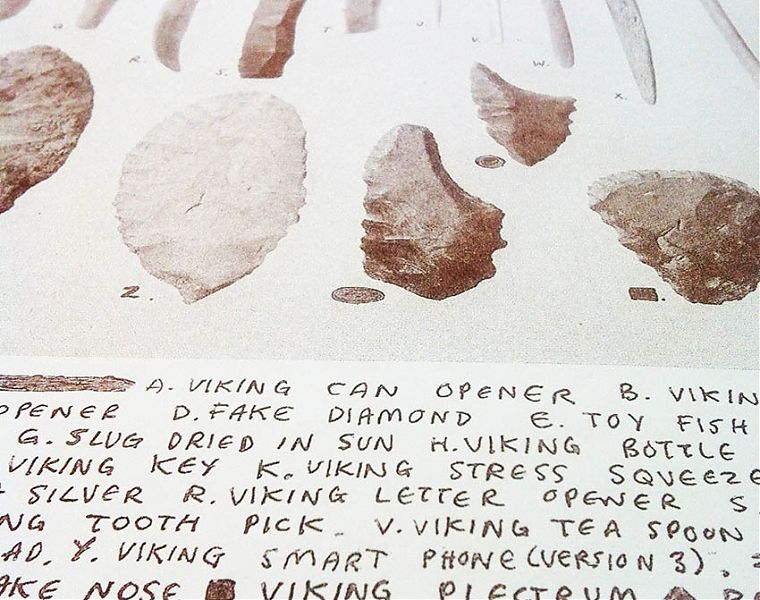 R. S. T. U. V. W. X.
Z.
A. VIKING CAN OPENER B. VIKIN
OPENER D. FAKE DIAMOND E. TOY FISH
G. SLUG DRIED IN SUN H. VIKING BOTTLE
VIKING KEY K. VIKING STRESS SQUEEZE
SILVER R. VIKING LETTER OPENER S.
NG TOOTH PICK. V. VIKING TEA SPOON
AD. Y. VIKING SMART PHONE (VERSION 3).
AKE NOSE VIKING PLECTRUM